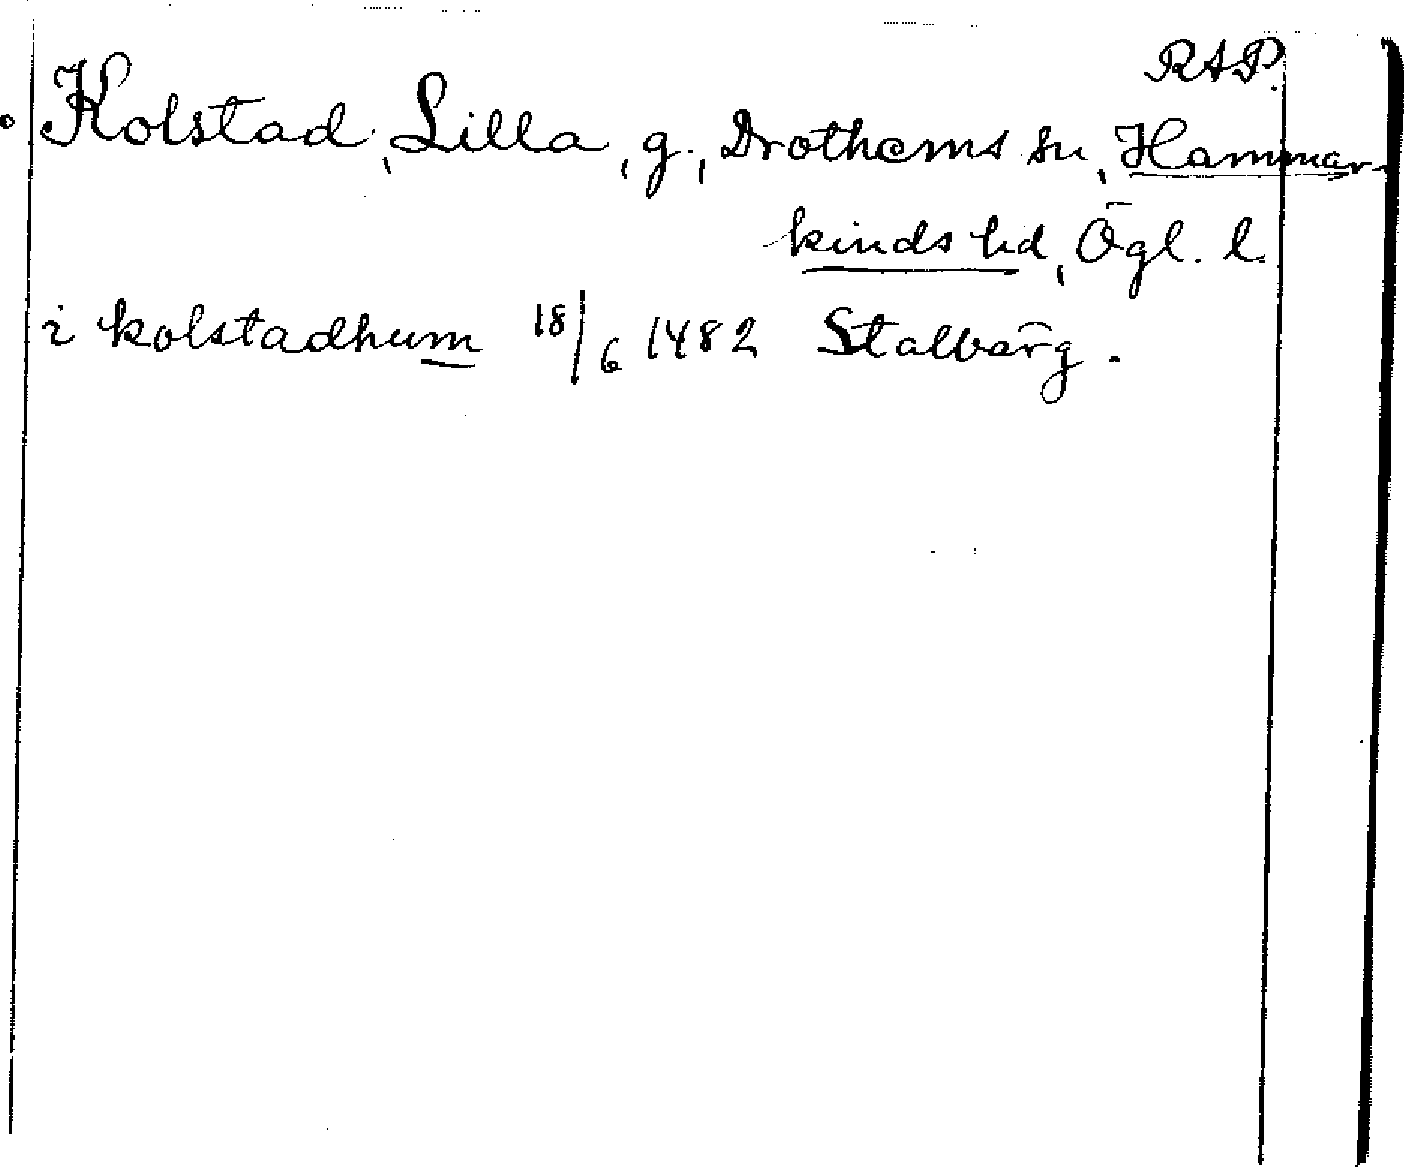 RAP.
Kolstad, Lilla, g., Drothems sn, Hammar-
kinds hd, Ögl. l.
i kolstadhum 18/6 1482 Stalbærg.